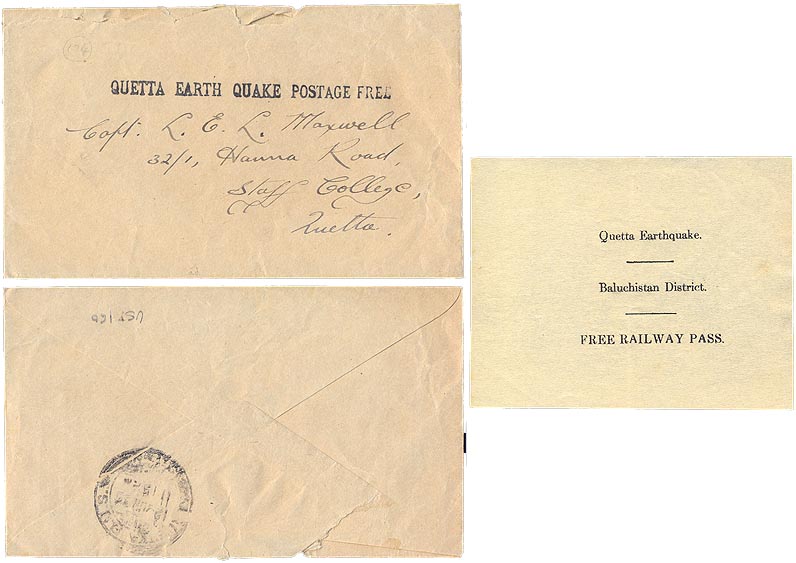 174
QUETTA EARTH QUAKE POSTAGE FREE
Capt. L. E. L. Maxwell
32/1, Hanna Road,
Staff College,
Quetta.
Quetta Earthquake.
Baluchistan District.
FREE RAILWAY PASS.